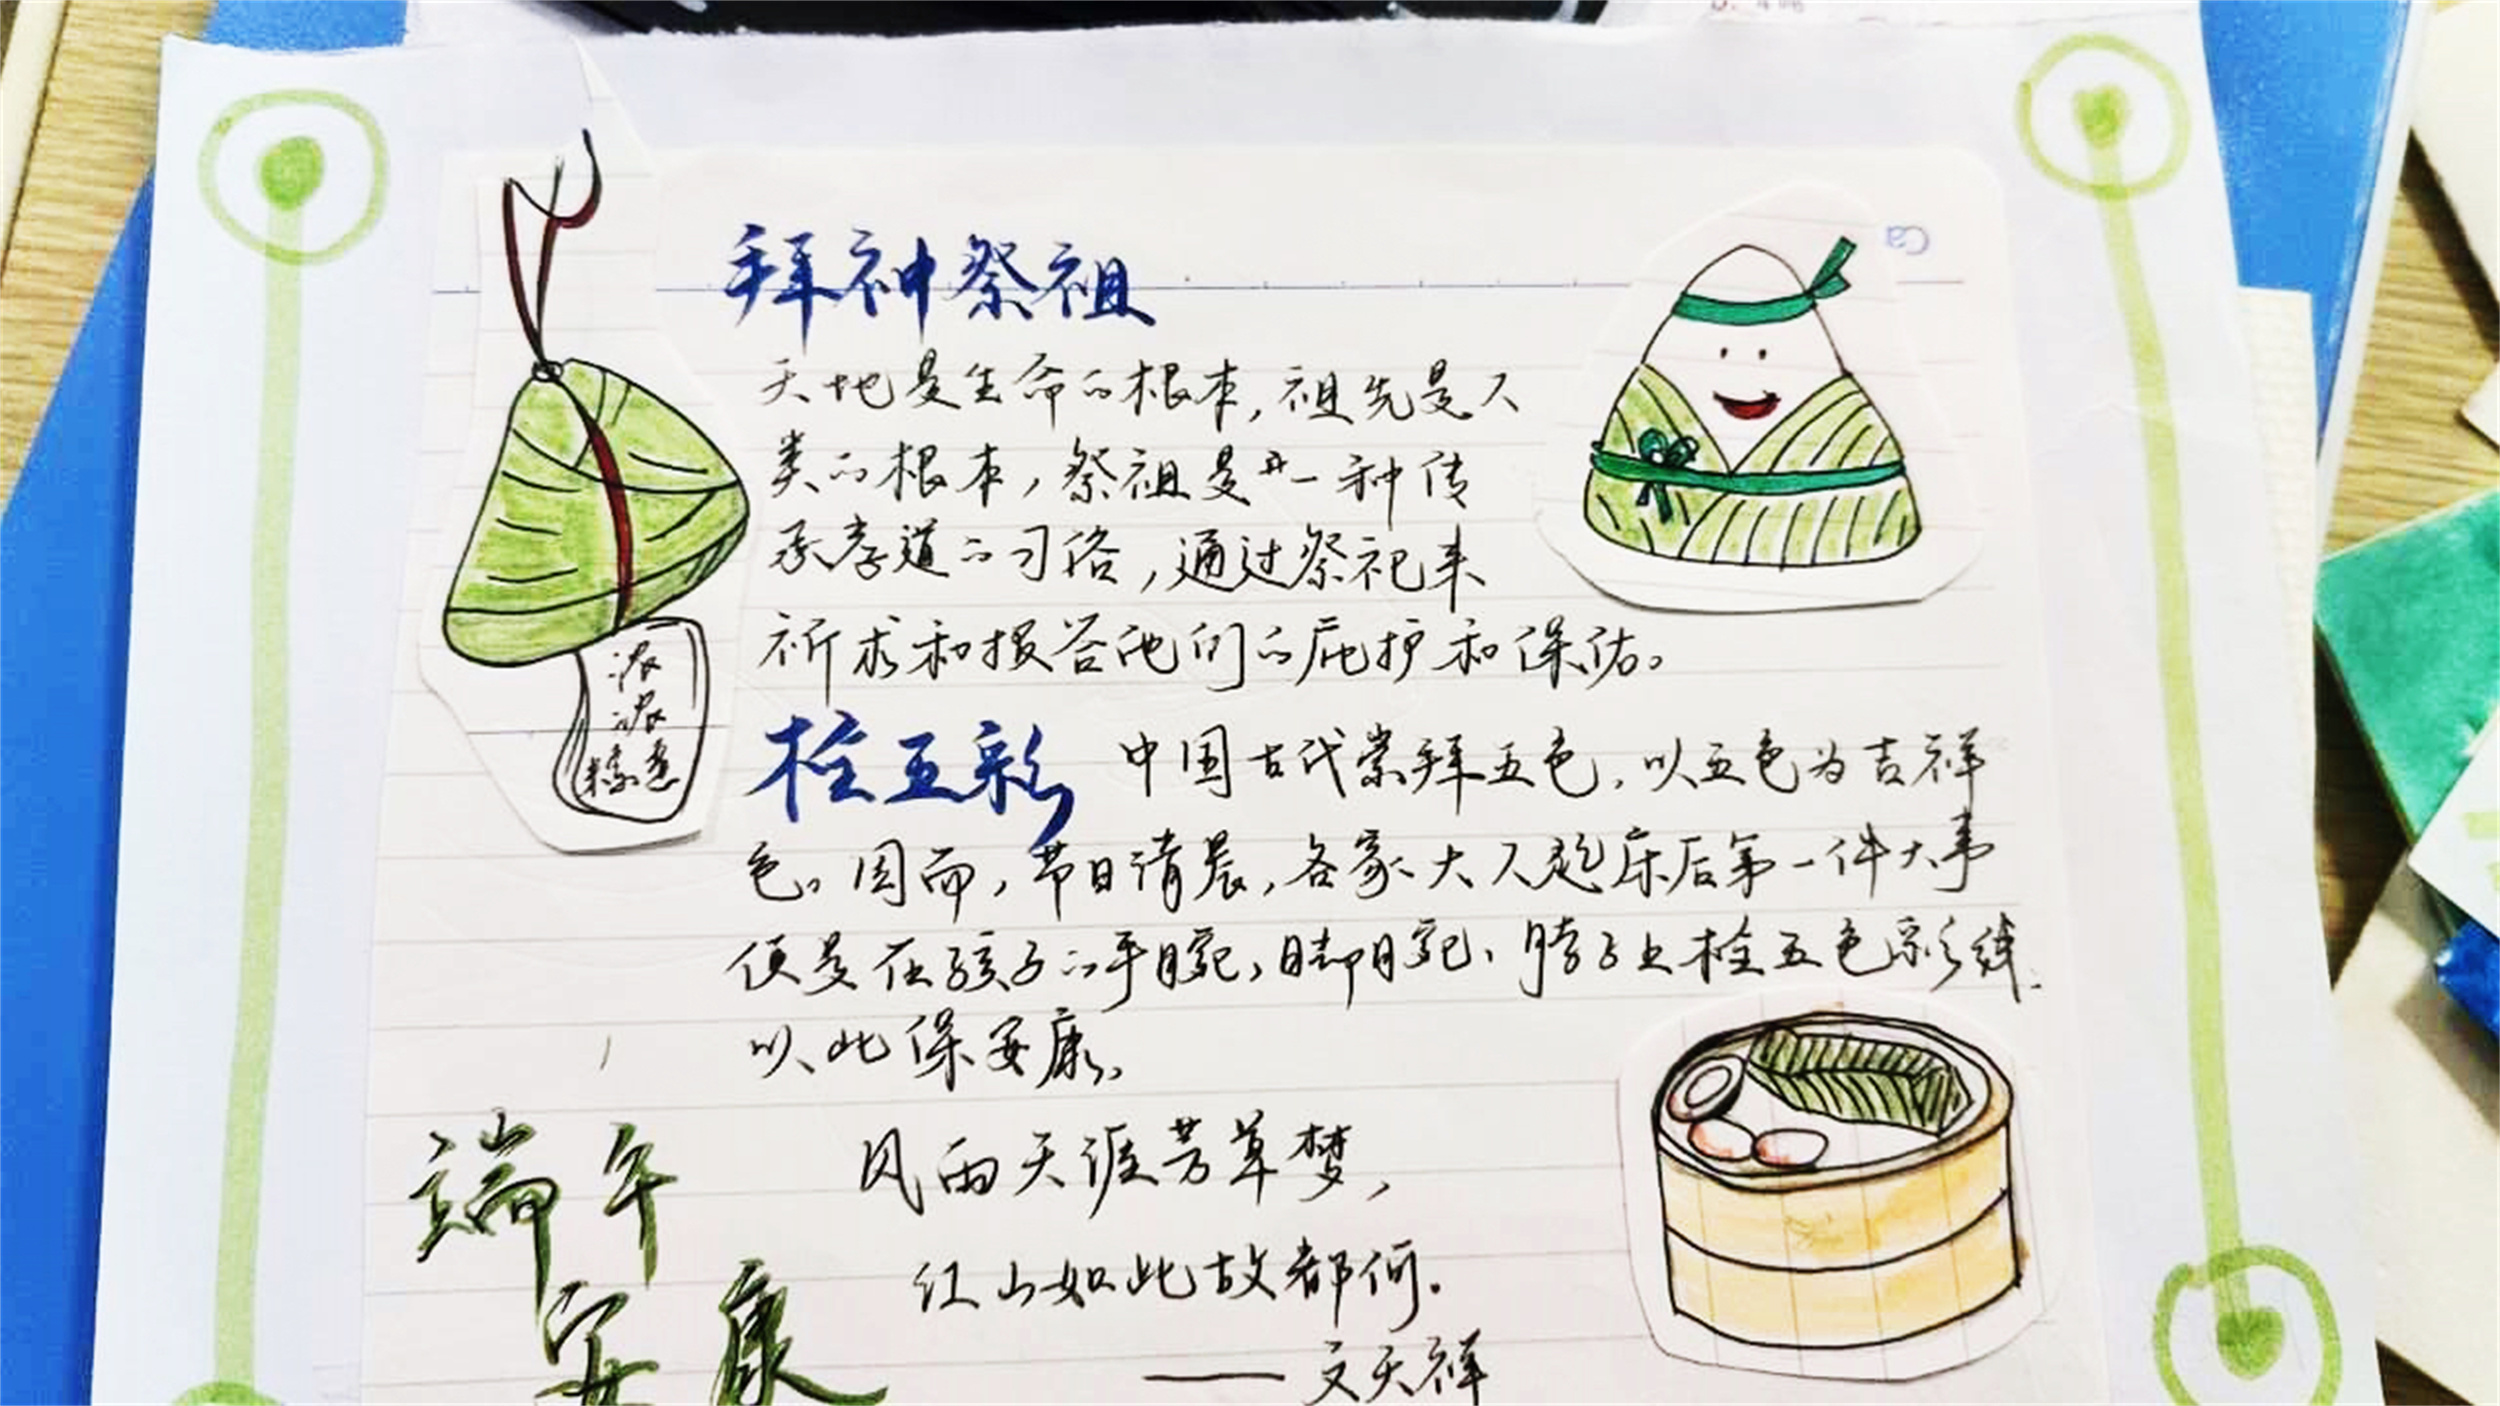 拜神祭祖
天地是生命的根本，祖先是人
类的根本，祭祖是一种传
承孝道的习俗，通过祭祀来
祈求和报答他们的庇护和保佑。
浓
浓
粽意
栓五彩 中国古代崇拜五色，以五色为吉祥
色。因而，节日清晨，各家大人起床后第一件大事
便是在孩子的手腕，脚腕、脖子上栓五色彩线.
以此保安康，
端午
安康
风雨天涯芳草梦，
江山如此故都何。
——文天祥